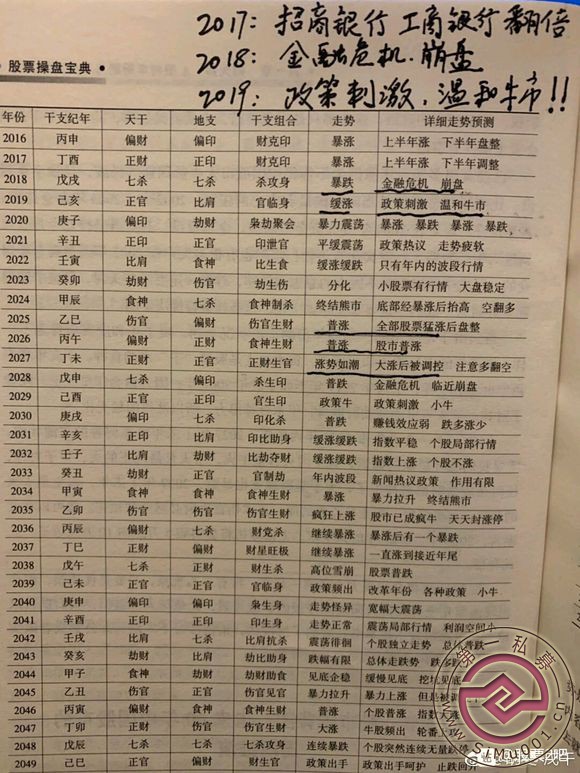 2017: 招商银行 工商银行 翻倍
2018: 金融危机.崩盘
• 股票操盘宝典 •
2019: 政策刺激.温和牛市!!
年份 干支纪年 天干 地支 干支组合 走势 详细走势预测
2016 丙申 偏财 偏印 财克印 暴涨 上半年涨 下半年盘整
2017 丁酉 正财 正印 财克印 暴涨 上半年涨 下半年调整
2018 戊戌 七杀 七杀 杀攻身 暴跌 金融危机 崩盘
2019 己亥 正官 比肩 官临身 缓涨 政策刺激 温和牛市
2020 庚子 偏印 劫财 枭劫聚会 暴力震荡 暴涨 暴跌 暴涨 暴跌
2021 辛丑 正印 正官 印泄官 平缓震荡 政策热议 走势疲软
2022 壬寅 比肩 食神 比生食 缓涨缓跌 只有年内的波段行情
2023 癸卯 劫财 伤官 劫生伤 分化 小股票有行情 大盘稳定
2024 甲辰 食神 七杀 食神制杀 终结熊市 底部经暴涨后抬高 空翻多
2025 乙巳 伤官 偏财 伤官生财 普涨 全部股票猛涨后盘整
2026 丙午 偏财 正财 食神生财 普涨 股市普涨
2027 丁未 正财 正官 正财生官 涨势如潮 大涨后被调控 注意多翻空
2028 戊申 七杀 偏印 杀生印 普跌 金融危机 临近崩盘
2029 己酉 正官 正印 官生印 政策牛 政策刺激 小牛
2030 庚戌 偏印 七杀 印化杀 普跌 赚钱效应弱 跌多涨少
2031 辛亥 正印 比肩 印比助身 缓涨缓跌 指数平稳 个股局部行情
2032 壬子 比肩 劫财 比劫夺财 缓涨缓跌 指数上涨 个股不涨
2033 癸丑 劫财 正官 官制劫 年内波段 新闻热议政策 作用有限
2034 甲寅 食神 食神 食神生财 暴涨 暴力拉升 终结熊市
2035 乙卯 伤官 伤官 伤官生财 疯狂上涨 股市已成疯牛 天天封涨停
2036 丙辰 偏财 七杀 财党杀 继续暴涨 暴涨后有一个暴跌
2037 丁巳 正财 偏财 财星旺极 继续暴涨 一直涨到接近年尾
2038 戊午 七杀 正财 财生杀 高位雪崩 股票普跌
2039 己未 正官 正官 官临身 政策频出 改革年份 各种政策 小牛
2040 庚申 偏印 偏印 枭生身 走势怪异 宽幅大震荡
2041 辛酉 正印 正印 印生身 走势正常 震荡局部行情 利润空间
2042 壬戌 比肩 七杀 比肩抗杀 震荡徘徊 个股独立走势 总体普跌
2043 癸亥 劫财 比肩 劫比助身 跌幅有限 总体走跌势
2044 甲子 食神 劫财 劫财助食 见底企稳 缓慢见底
2045 乙丑 伤官 正官 伤官见官 暴力拉升 暴力上涨
2046 丙寅 偏财 食神 食神生财 个股普涨 个股普涨
2047 丁卯 正财 伤官 伤官生财 大涨 牛股频出
2048 戊辰 七杀 七杀 七杀攻身 连续暴跌 个股突然连续无量
2049 己巳 正官 偏财 财生官 政策出手 政策出手 止跌回升
第一私募
SIMU001.cn